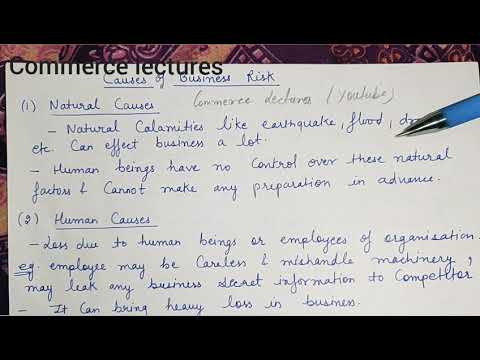 Commerce lectures
Causes of Business Risk
(1) Natural Causes Commerce lectures (Youtube)
- Natural Calamities like earthquake, flood,
etc. Can effect business a lot.
- Human beings have no Control over these natural
factors & Cannot make any preparation in advance.
(2) Human Causes
- Loss due to human beings or employees of organisation.
eg. employee may be Careless & mishandle machinery,
may leak any business secret information to Competitor
- It Can bring heavy loss in business.